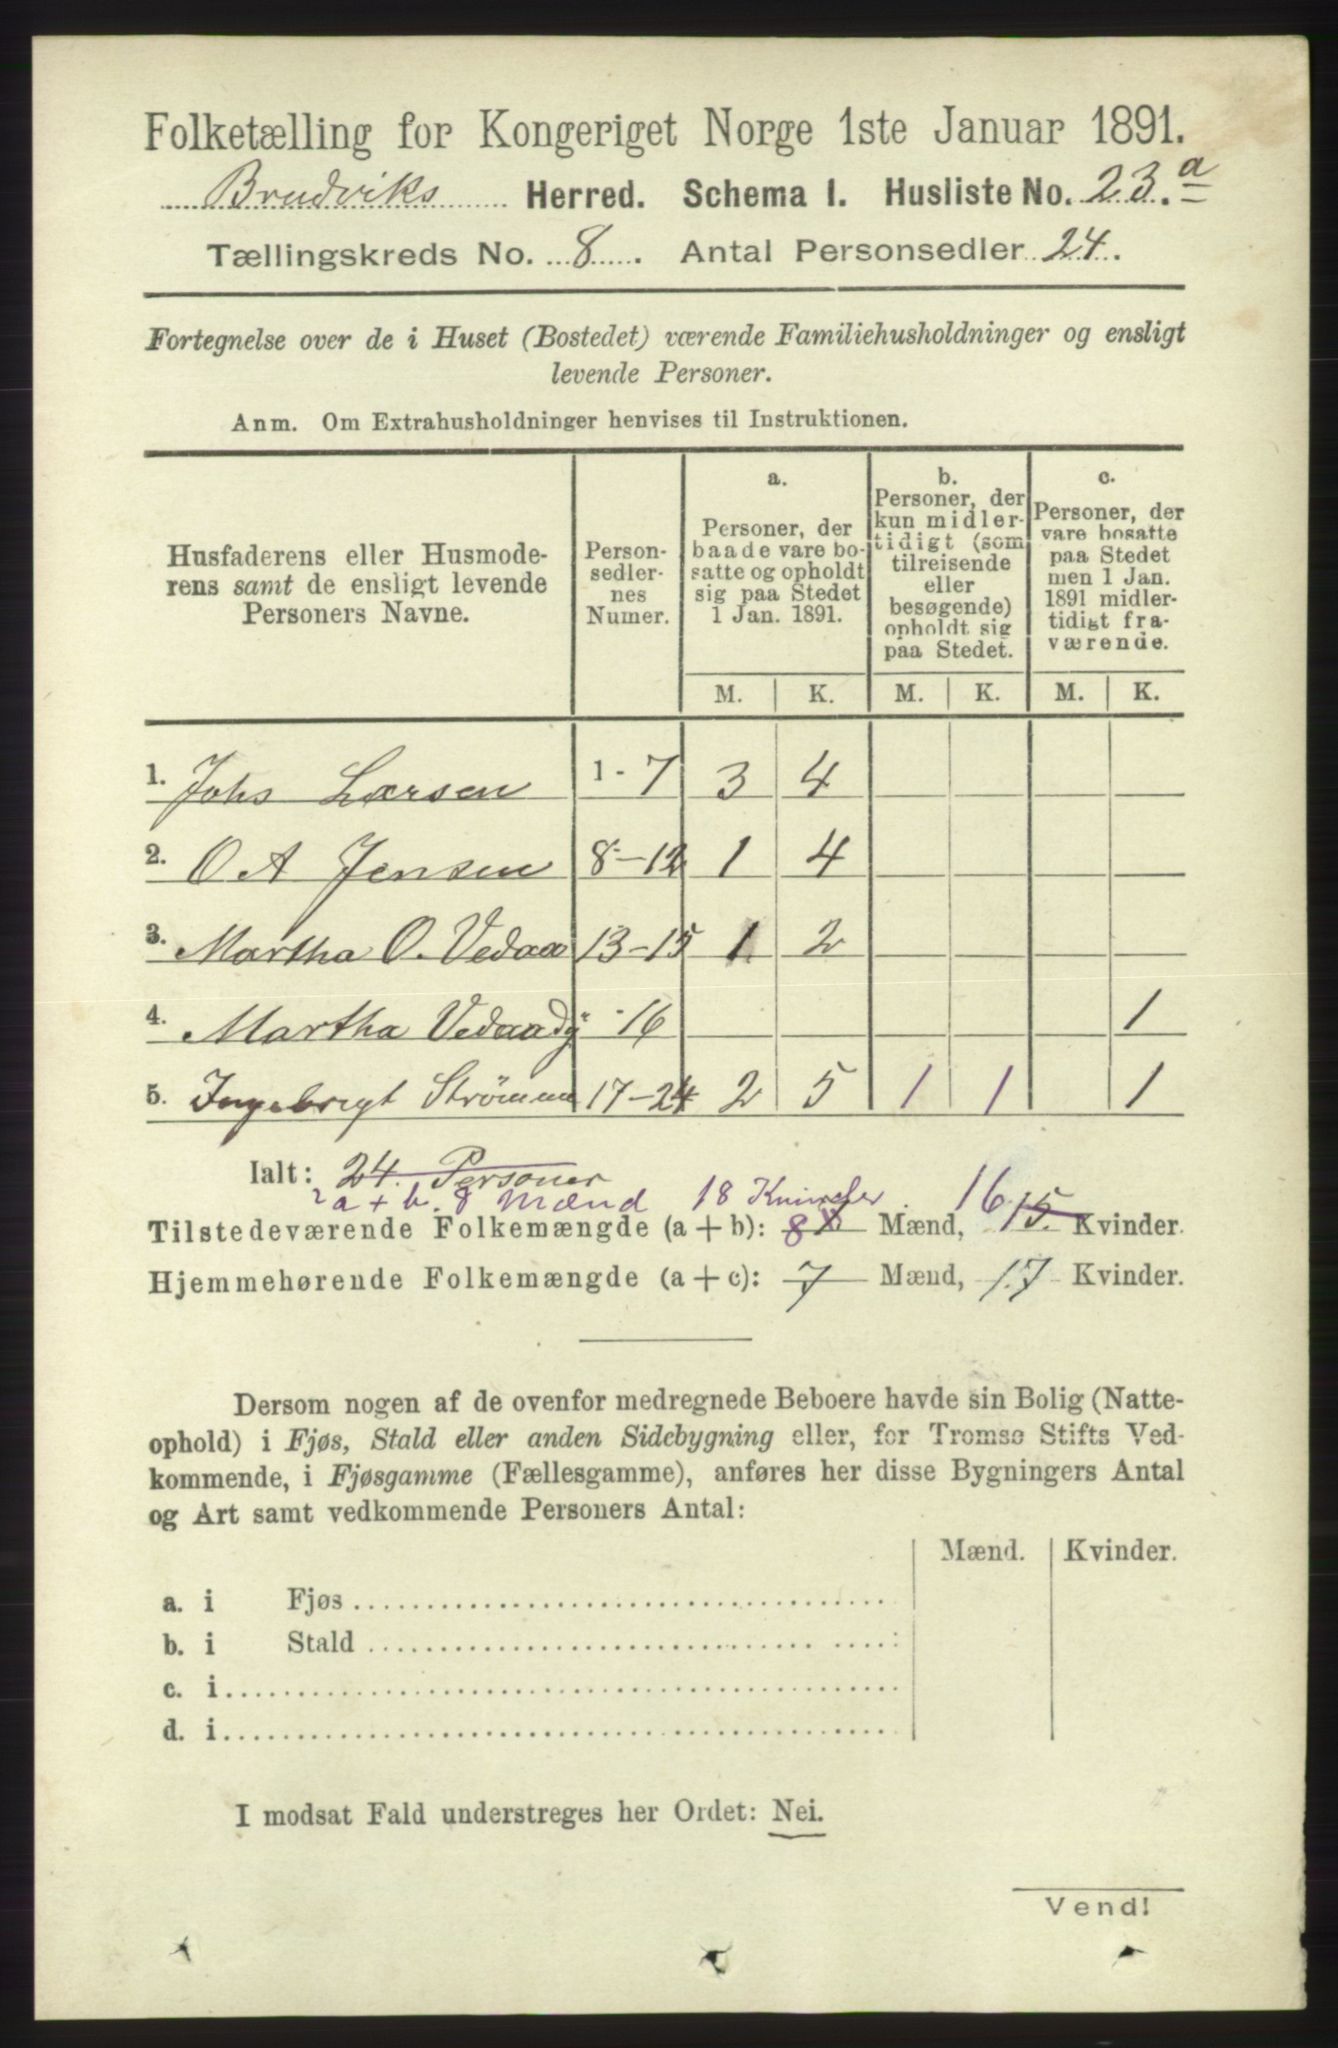 Folketælling for Kongeriget Norge 1ste Januar 1891.
Brudviks Herred. Schema I. Husliste No. 23.a
Tællingskreds No. 8. Antal Personsedler 24.
Fortegnelse over de i Huset (Bostedet) værende Familiehusholdninger og ensligt
levende Personer.
Anm. Om Extrahusholdninger henvises til Instruktionen.
Husfaderens eller Husmode-
rens samt de ensligt levende
Personers Navne.
Person-
sedler-
nes
Numer.
a.
Personer, der
baade vare bo-
satte og opholdt
sig paa Stedet
1 Jan. 1891.
b.
Personer, der
kun midler-
tidigt (som
tilreisende
eller
besøgende)
opholdt sig
paa Stedet.
c.
Personer, der
vare bosatte
paa Stedet
men 1 Jan.
1891 midler-
tidigt fra-
værende.
M. K. M. K. M. K.
1. Johs Larsen 1-7 3 4
2. O A Jensen 8-12 1 4
3. Martha O. Vedaa 13-15 1 2
4. Martha Vedaa 16 1
5. Ingebrigt Strømme 17-24 2 5 1 1 1
Ialt: 24. Personer
a + b. 8 Mænd 18 Kvinder.
Tilstedeværende Folkemængde (a + b): 8 Mænd, 16 15. Kvinder.
Hjemmehørende Folkemængde (a + c): 7 Mænd, 17 Kvinder.
Dersom nogen af de ovenfor medregnede Beboere havde sin Bolig (Natte-
ophold) i Fjøs, Stald eller anden Sidebygning eller, for Tromsø Stifts Ved-
kommende, i Fjøsgamme (Fællesgamme), anføres her disse Bygningers Antal
og Art samt vedkommende Personers Antal:
Mænd. Kvinder.
a. i Fjøs
b. i Stald
c. i
d. i
I modsat Fald understreges her Ordet: Nei.
Vend!